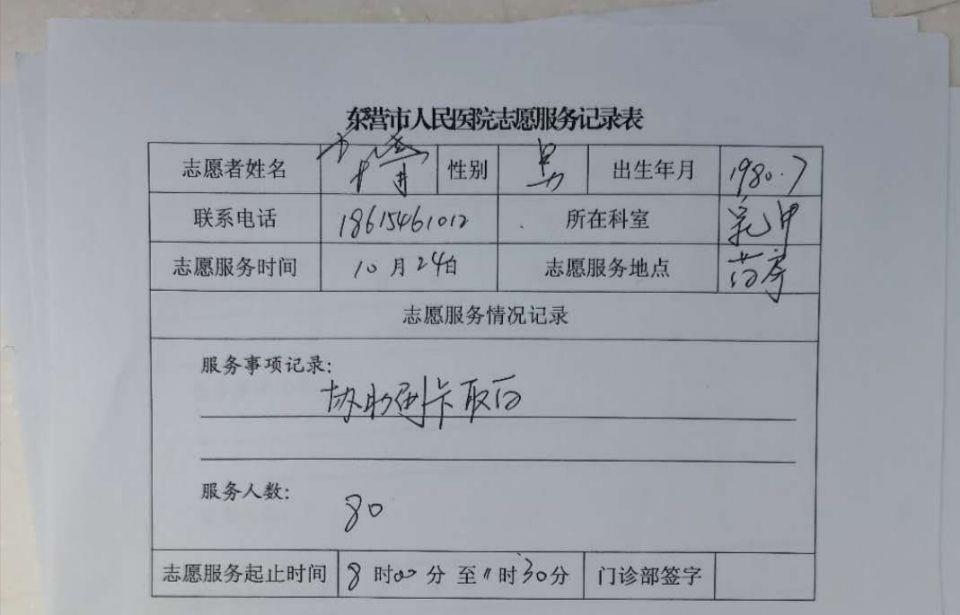 东营市人民医院志愿服务记录表
志愿者姓名 性别 男 出生年月 1980.7
联系电话 18615461012 所在科室
志愿服务时间 10月24日 志愿服务地点 药房
志愿服务情况记录
服务事项记录:
协助刷卡取药
服务人数:
80
志愿服务起止时间 8时00分至11时30分 门诊部签字